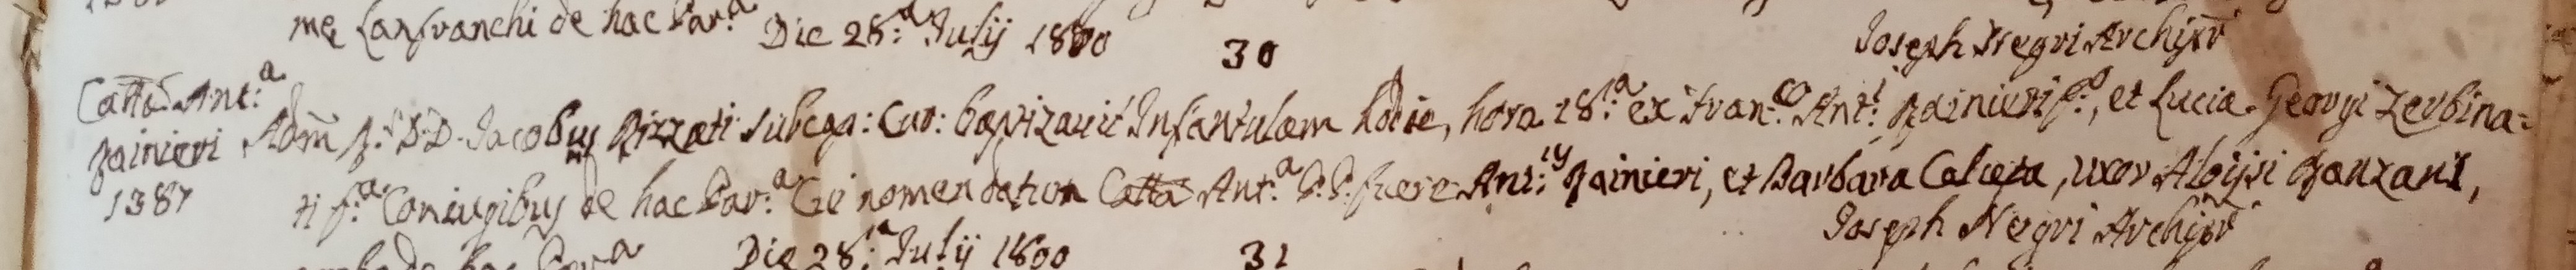 me Lanfranchi de hac Par:a Die 28:a Julij 1800 30 Joseph Negri Archipr
Catta Ant:a
Rainieri Adm R: D: D. Jacobus Rizzati Subega: Cur: baptizavit Infantulam hodie, hora 18:a ex Fran:co Ant:i Rainieri f:o, et Lucia Georgi Zerbina=
1387 ti f:a Coniugibus de hac Par:a Cui nomen datum Catta Ant:a P.P. fuere Ant:ius Rainieri, et Barbara Calceta, uxor Aloijsi Ganzani,
Joseph Negri Archipr
de hac Par:a Die 28:a Julij 1800 31